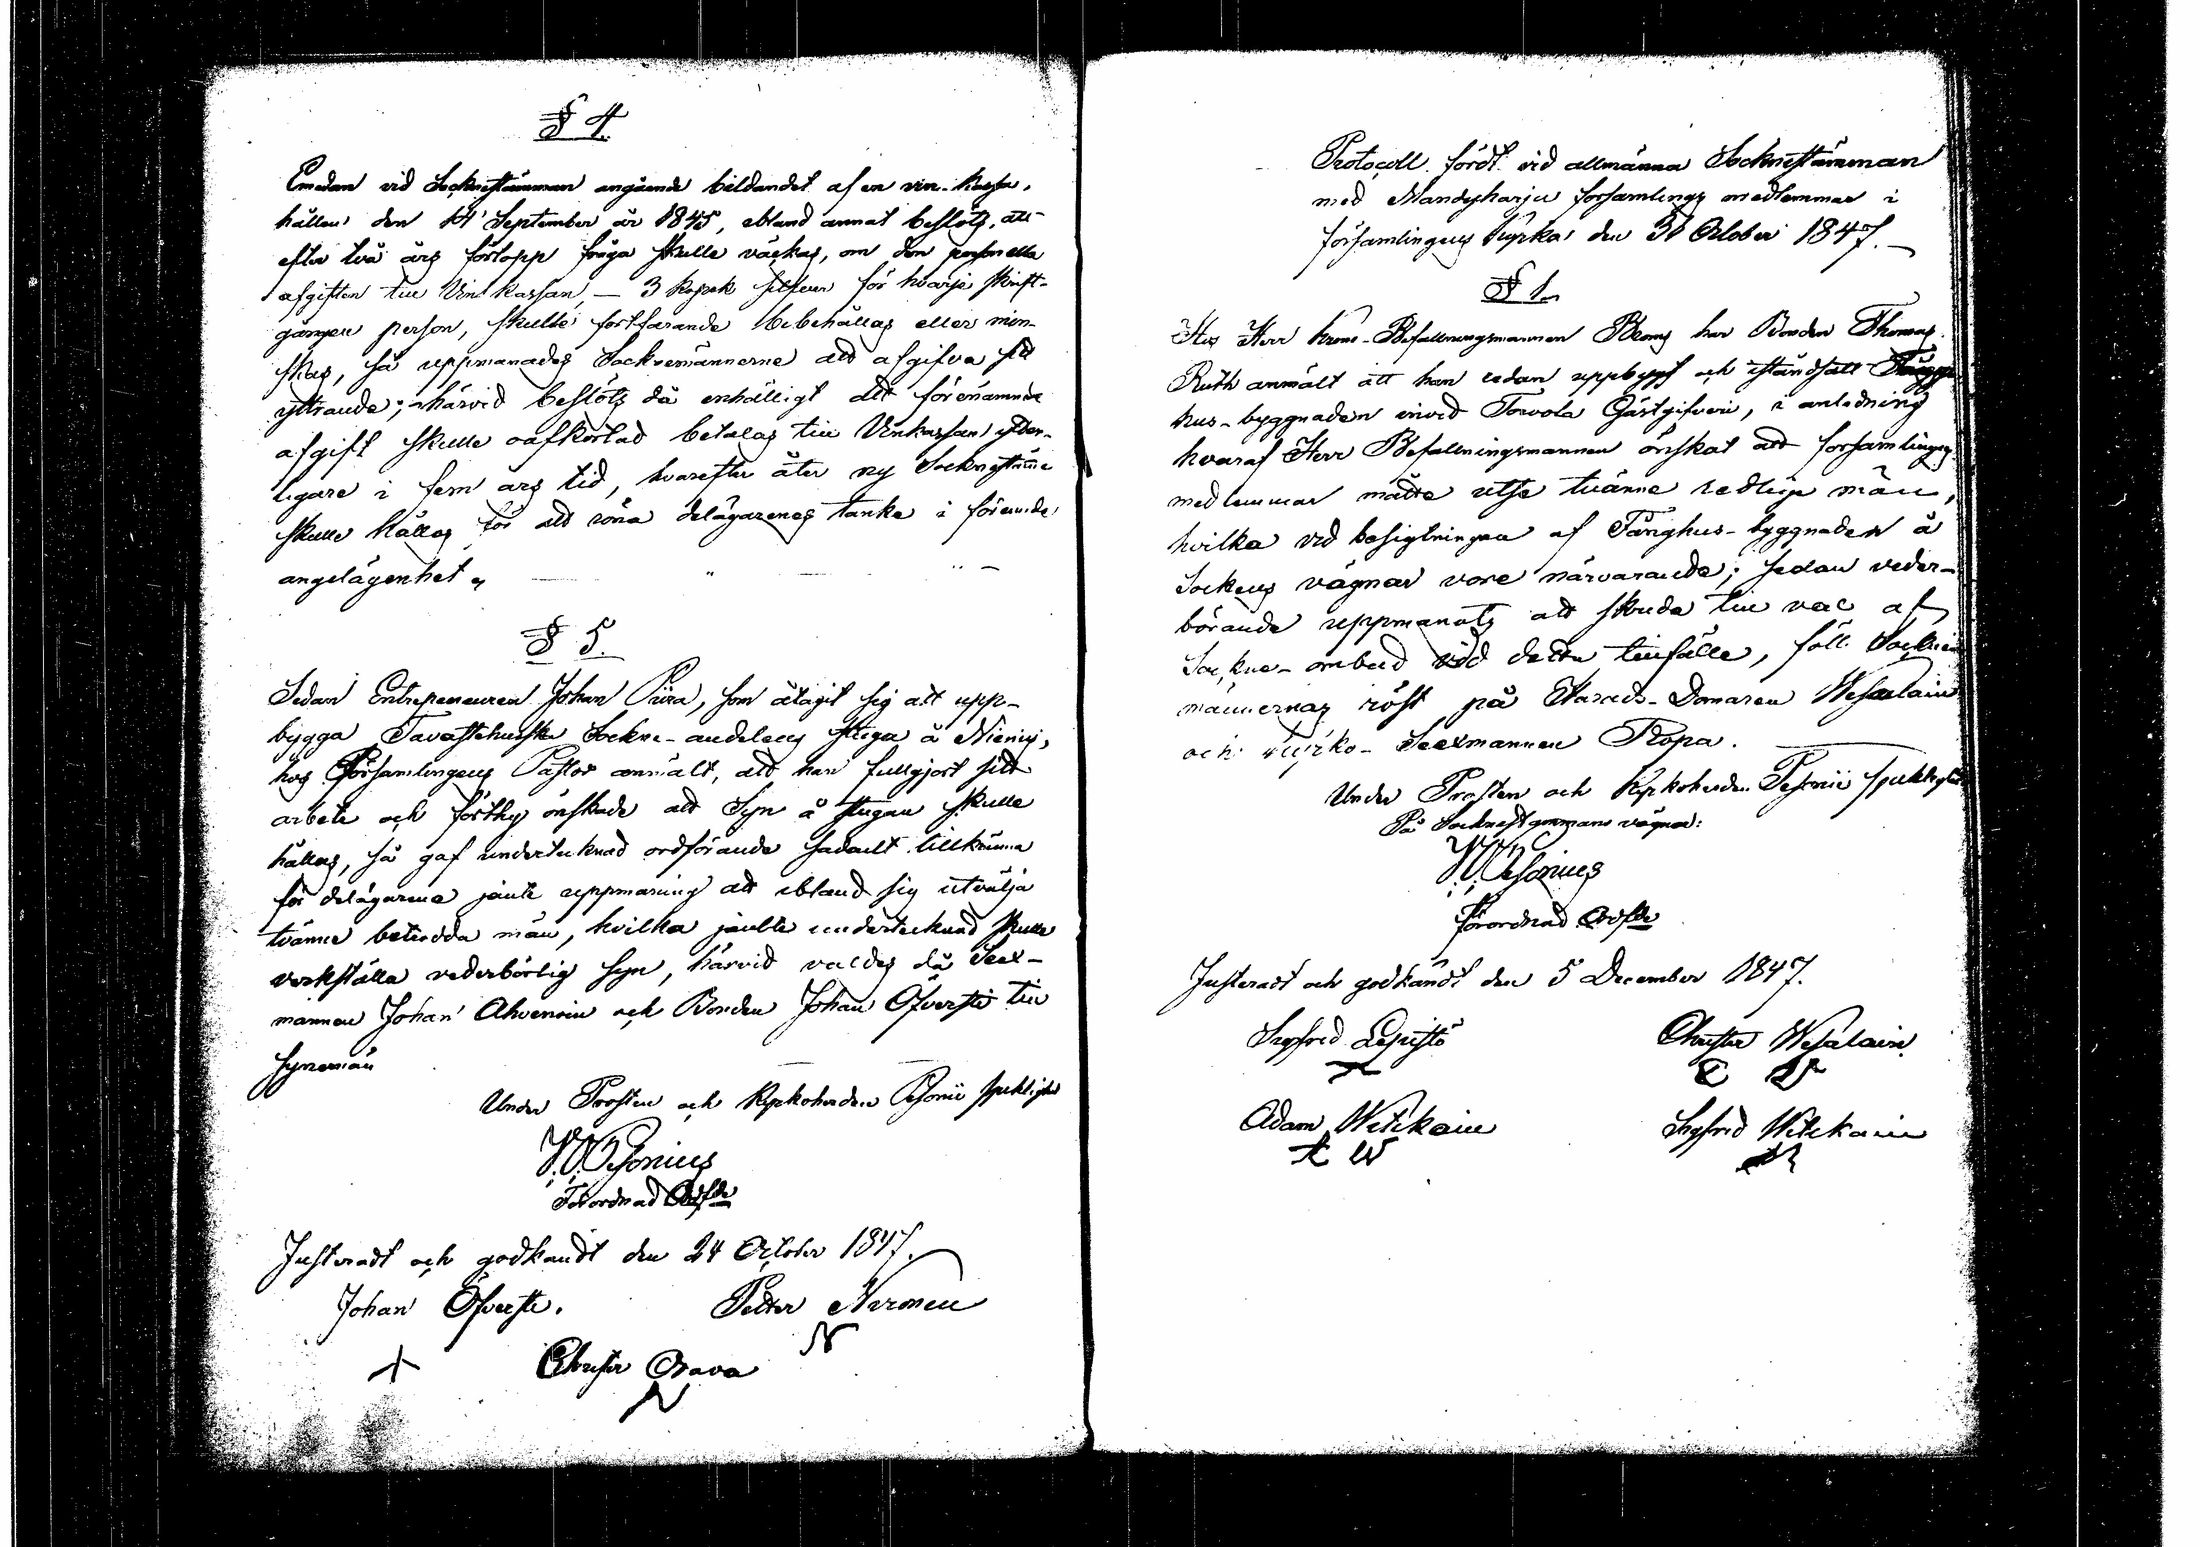 § 4.
Emedan vid Socknestämman angående bildandet af en vin-kassa,
hållen den 14 September år 1845, ibland annat beslöts, att
efter två års förlopp fråga skulle väckas, om den personella
afgiften till Vinkassan, — 3 kopek silfver för hvarje skrift-
gången person, skulle fortfarande bibehållas eller min-
skas, så uppmanades Socknemännerne att afgifva sitt
yttrande; härvid beslöts då enhälligt att förenämnde
afgift skulle oafkortad betalas till Vinkassan ytter-
ligare i fem års tid, hvarefter åter ny Socknestämma
skulle hållas för att röna delägarenes tanke i
angelägenhet
§ 5.
Sedan Entrepreneuren Johan Piira, som åtagit sig att upp-
bygga Tavastehusska Sockne-andelens stuga å
hos Församlingens Pastor anmält, att han fullgjort sitt
arbete och förthy önskade att Syn å stugan skulle
hållas, så gaf undertecknad ordförande sådant tillkänna
för delägarena jämte uppmaning att ibland sig utvälja
tvänne betrodda män, hvilka jämte undertecknad skulle
verkställa vederbörlig syn, härvid valdes då Sex-
mannen Johan Ahvenain och Bonden Johan Öfversti till
synemän
Under Prosten och Kyrkoherden Pesonii sjuklighet
Pesonius
Förordnad Ordfde
Justeradt och godkändt den 24 October 1847.
Johan Öfversti. Petter Nironen
N
Christer Orava
Protocoll fördt vid allmänna Socknestämman
med Mandyharju församlings medlemmar i
församlingens Kyrka den 31 October 1847.
§ 1.
Hos Herr Krono-Befallningsmannen har Bonden Thomas
Ruth anmält att han redan uppbyggt och iståndsatt
hus-byggnaden invid Toivola Gästgifveri, i anledning
hvaraf Herr Befallningsmannen önskat att församlingens
medlemmar måtte utse tvänne redliga män,
hvilka vid besigtningen af Fånghus-byggnaden å
Sockens vägnar vore närvarande; sedan veder-
börande uppmanats att skrida till val af
Sockne-ombud vid detta tillfälle, föll Sockne-
männernas röst på Härads-Domaren Wesalain
och Kyrko-Sexmannen Ropa.
Under Prosten och Kyrkoherden Pesonii sjuklighet
På Socknestämmans vägnar:
Pesonius
Förordnad Ordfde
Justeradt och godkändt den 5 December 1847.
Sigfrid Lepistö Christer Wesalain
C W
Adam Witikain Sigfrid Witikain
A W